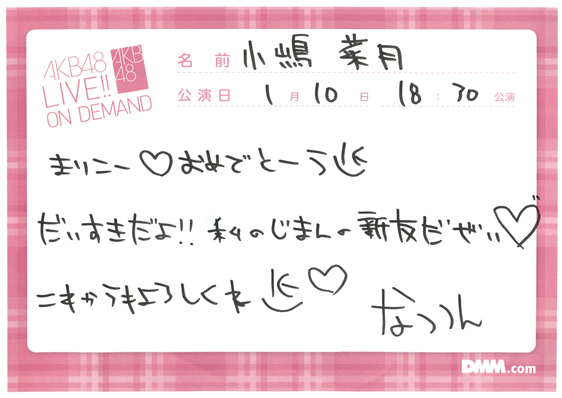 AKB48
LIVE!!
ON DEMAND
AKB
48
名前 小嶋 菜月
公演日 1月10日 18:30公演
まりこー♡おめでとーう
だいすきだよ!! 私のじまんの新友だぜぃ♡
これからもよろしくね ♡
なっつん
DMM.com